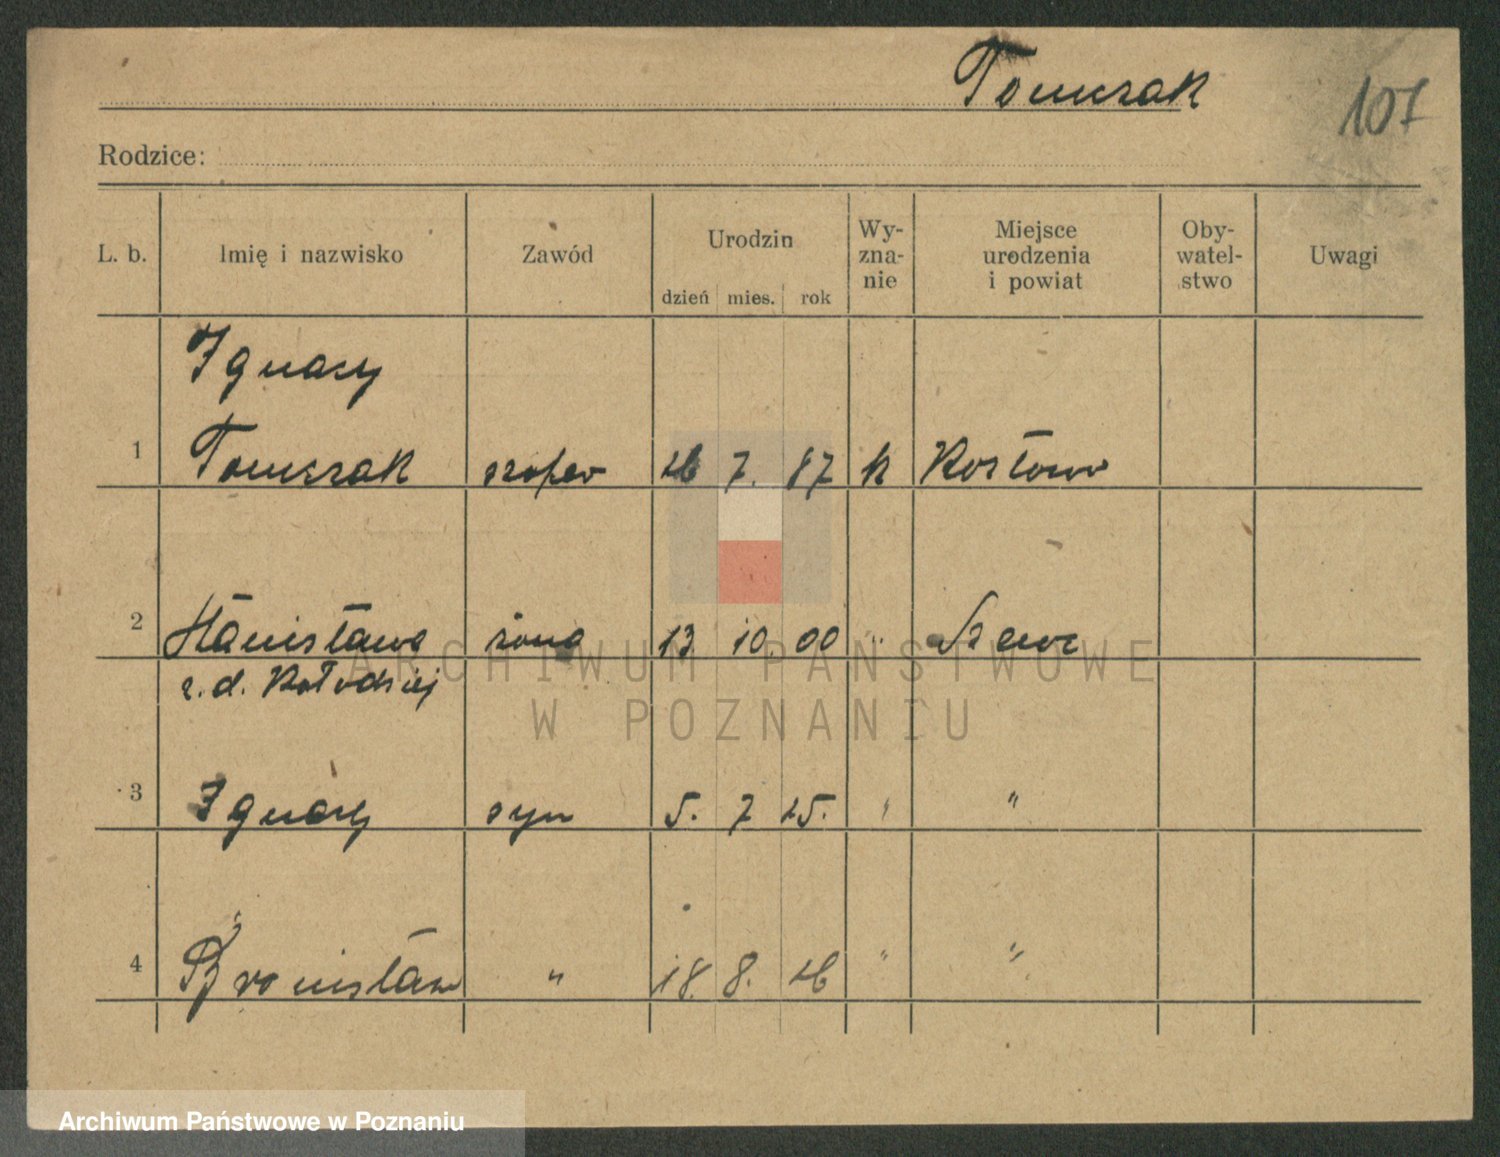 Tomczak
107
Rodzice:
L. b. Imię i nazwisko Zawód Urodzin dzień mies. rok Wy-zna-nie Miejsce urodzenia i powiat Oby-watel-stwo Uwagi
Ignacy
1 Tomczak szofer 26 7. 87 k
2 Stanisława żona 13 10. 00 "
z. d. Kołodziej
3 Ignacy syn 5. 7 25. " "
4 Bronisław " 18. 8. 26 " "
ARCHIWUM PAŃSTWOWE
W POZNANIU
Archiwum Państwowe w Poznaniu